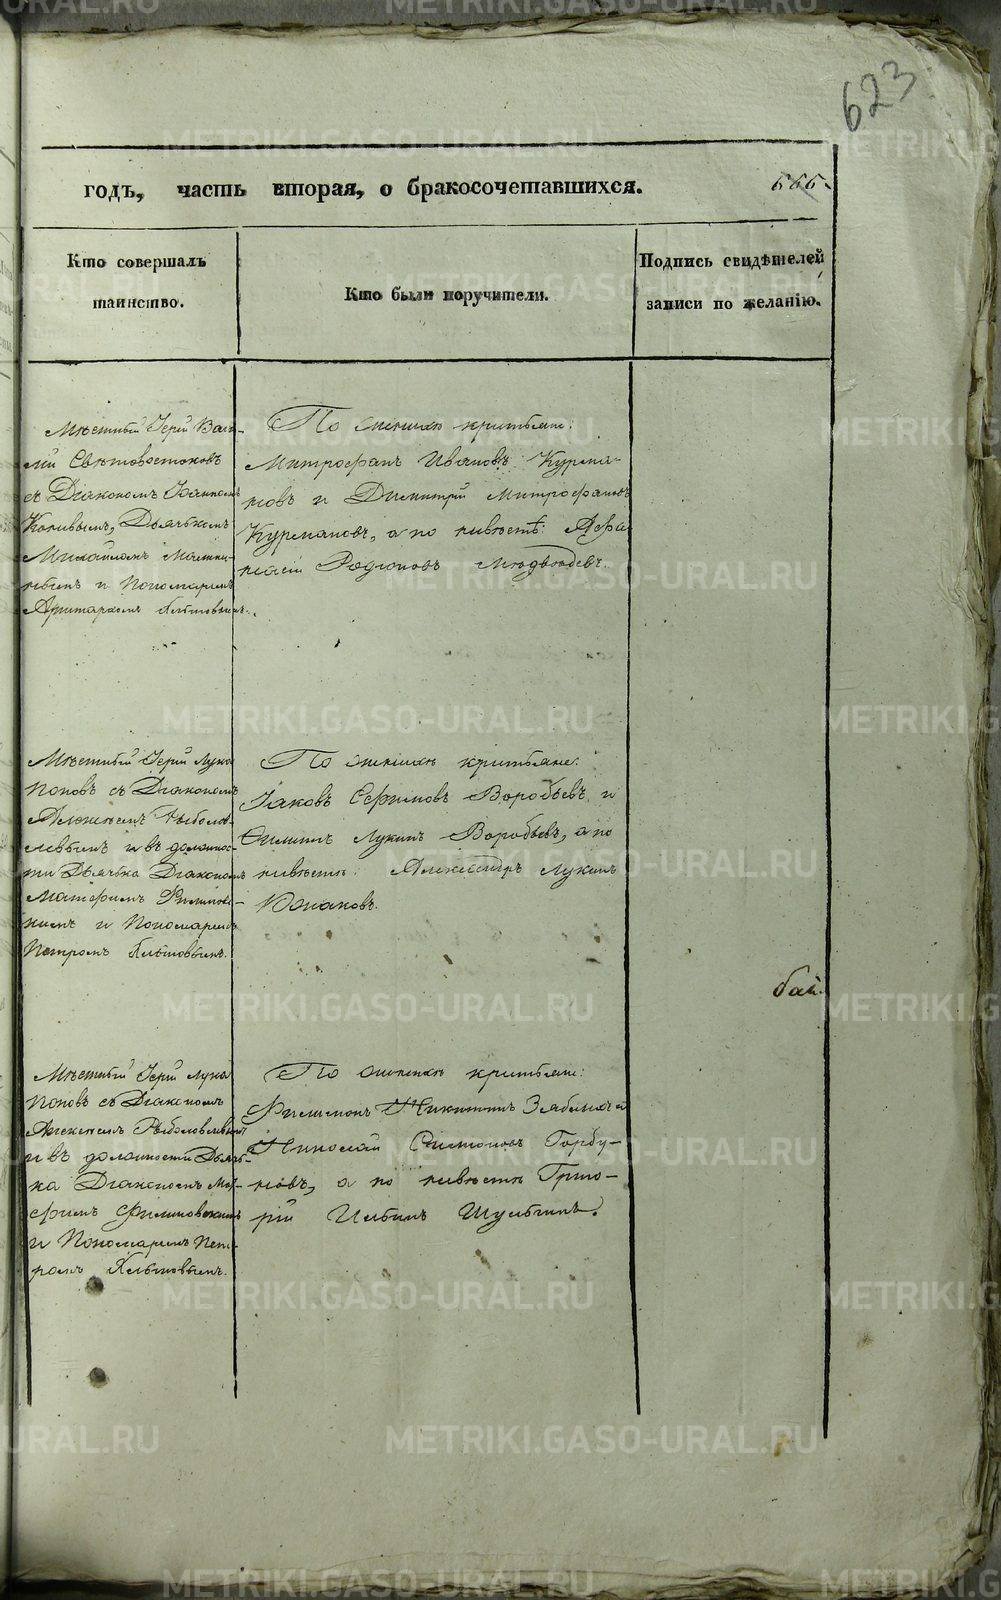 623
годъ, часть вторая, о бракосочетавшихся.
666.
Кто совершалъ
таинство.
Кто были поручители.
Подпись свидѣтелей
записи по желанію.
Мѣстный Іерей Васи-
лій Свѣтовостоковъ
съ Діакономъ Іоанномъ
Дьячкомъ
Михаиломъ
и Пономаремъ
Аристархомъ Хлыновымъ.
По женихѣ крестьяне:
Митрофанъ Ивановъ Курма-
новъ и Димитрій Митрофановъ
Курмановъ, а по невѣстѣ: Афа-
насій Родіоновъ Медвѣдевъ.
Мѣстный Іерей Лука
Поповъ съ Діакономъ
Алексѣемъ Рыболов-
левымъ и въ должнос-
ти Дьячка Діакономъ
Филиновс-
кимъ и Пономаремъ
Петромъ Хлыновымъ.
По женихѣ крестьяне:
Іаковъ Ефимовъ Воробьевъ и
Филипъ Лукинъ Воробьевъ, а по
невѣстѣ: Александръ Лукинъ
Южаковъ.
бай.
Мѣстный Іерей Лука
Поповъ съ Діакономъ
Алексѣемъ Рыболовлевымъ
и въ должности Дьяч-
ка Діакономъ
Филиновскимъ
и Пономаремъ Пет-
ромъ Хлыновымъ.
По женихѣ крестьяне:
Филимонъ Никитинъ Зяблихъ и
Николай Симоновъ Горбу-
новъ, а по невѣстѣ Григо-
рій Ильинъ Шульгинъ.
METRIKI.GASO-URAL.RU